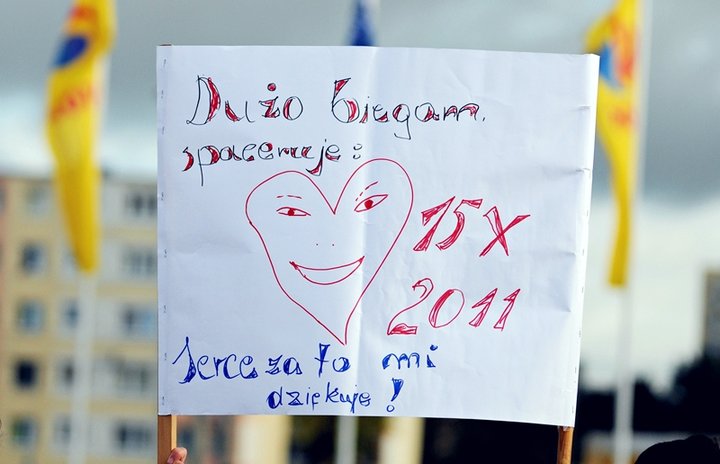 Dużo biegam.
spaceruje:
15 X
2011
Serce za to mi
dziękuje!